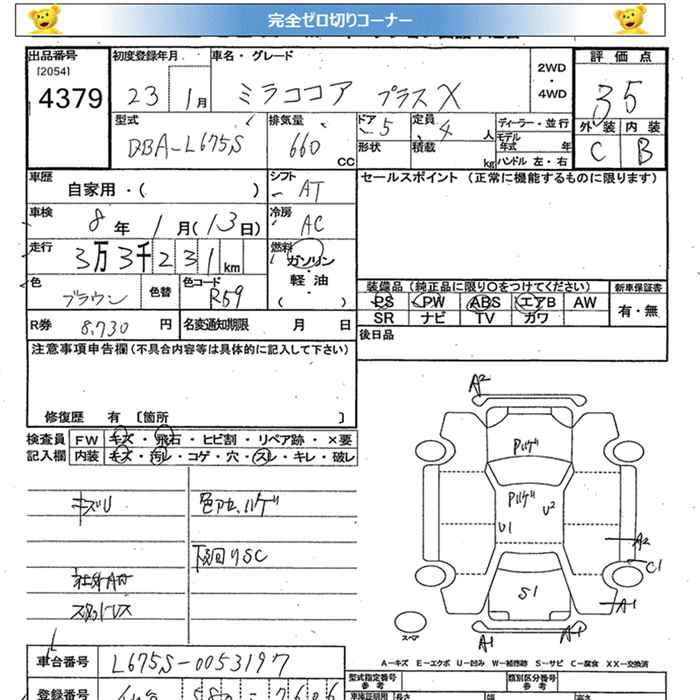 完全ゼロ切りコーナー
出品番号 初度登録年月 車名・グレード 評価点
[2054]
4379 23 1月 ミラココア プラスX 2WD・4WD 35
型式 排気量 ドア 定員 ディーラー・並行 外装 内装
DBA-L675S 660 CC 5 4人 モデル年式 年 C B
形状 積載 kg ハンドル 左・右
車歴 シフト セールスポイント(正常に機能するものに限ります)
自家用・( ) AT
車検 冷房
8年 1月(13日) AC
走行 燃料
3万3千231km ガソリン・軽油 ( )
色 色替 色コード 装備品(純正品に限り○をつけてください) 新車保証書
ブラウン R59 PS PW ABS エアB AW 有・無
SR ナビ TV カワ
R券 8,730円 名変通知期限 月 日 後日品
注意事項申告欄(不具合内容等は具体的に記入して下さい)
修復歴 有 [箇所 ]
検査員 FW キズ・飛石・ヒビ割・リペア跡・×要
記入欄 内装 キズ・汚レ・コゲ・穴・スレ・キレ・破レ
キズU 色アセ、ハゲ
下回りSC
社外AW
スタッドレス
A2
Pハゲ
Pハゲ
U2
U1
A2
C1
S1
A1
スペア
A1 A1
A-キズ E-エクボ U-凹み W-補修跡 S-サビ C-腐食 XX-交換済
車台番号 L675S-0053197
型式指定番号 参考 類別区分番号 参考
登録番号 580 7606
車庫証明用 長さ 幅 高さ